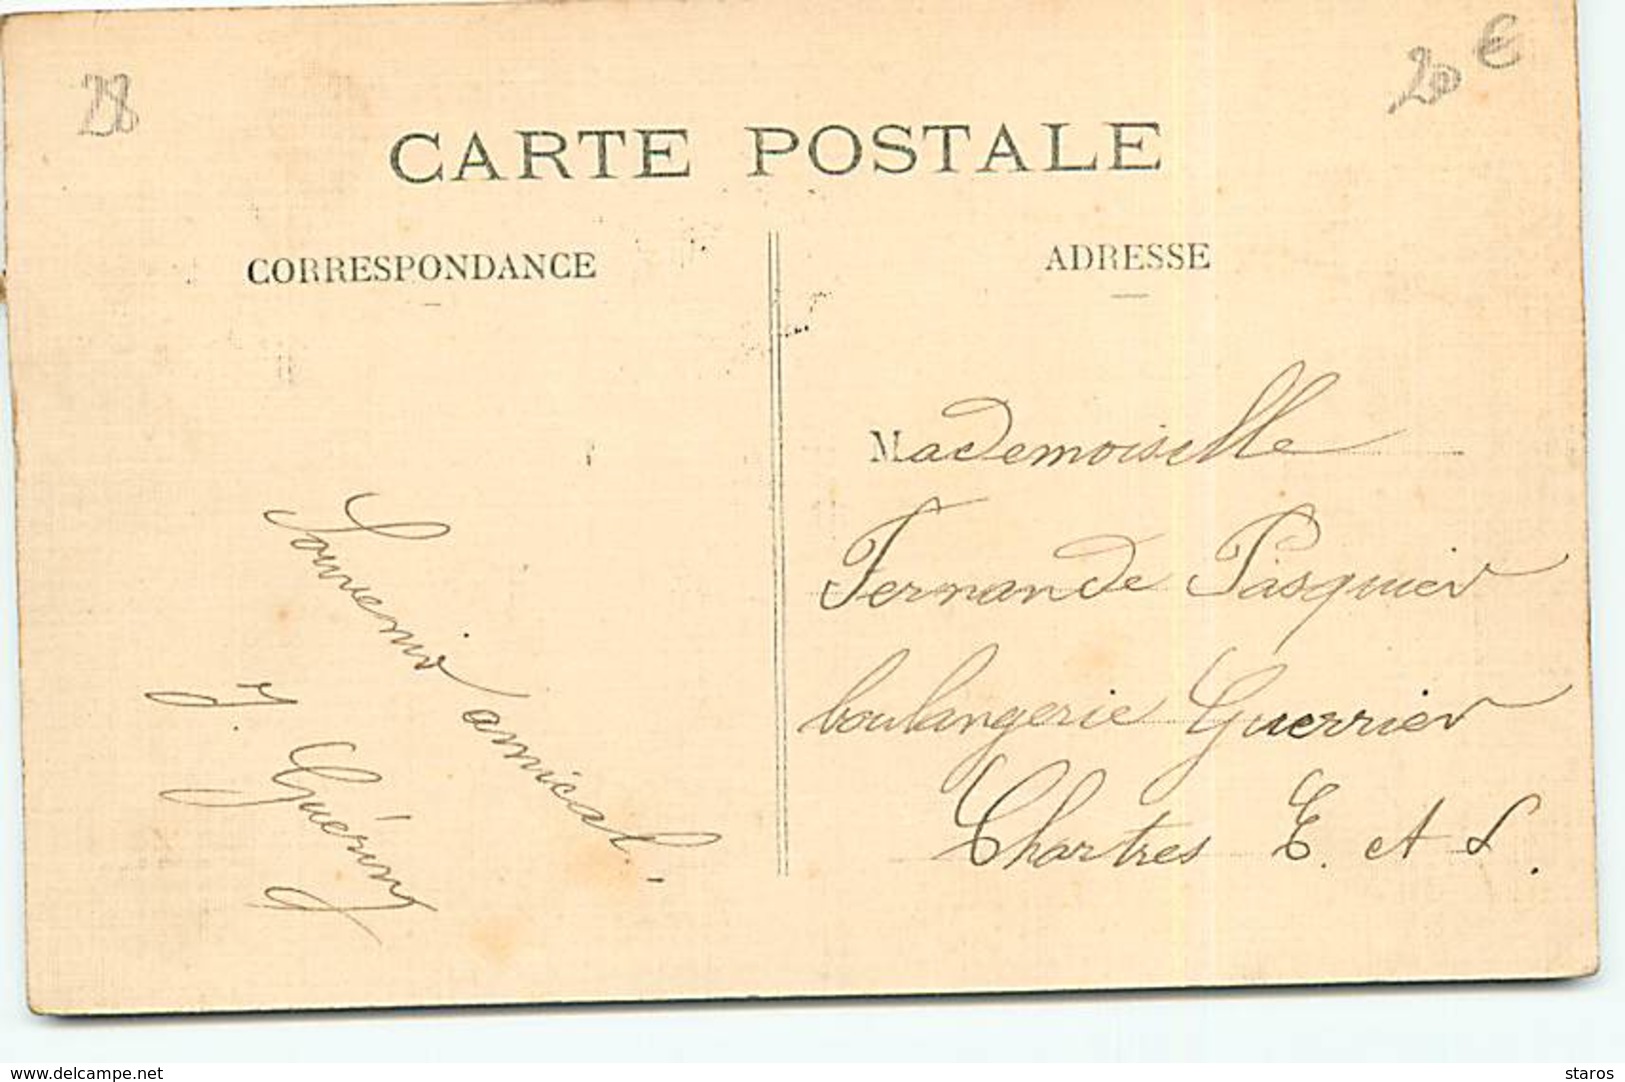 28
20 €
CARTE POSTALE
CORRESPONDANCE
ADRESSE
Souvenir amical.
J. Guérin
Mademoiselle
Fernande Pasquier
boulangerie Guerrier
Chartres E. et L.
www.delcampe.net
staros